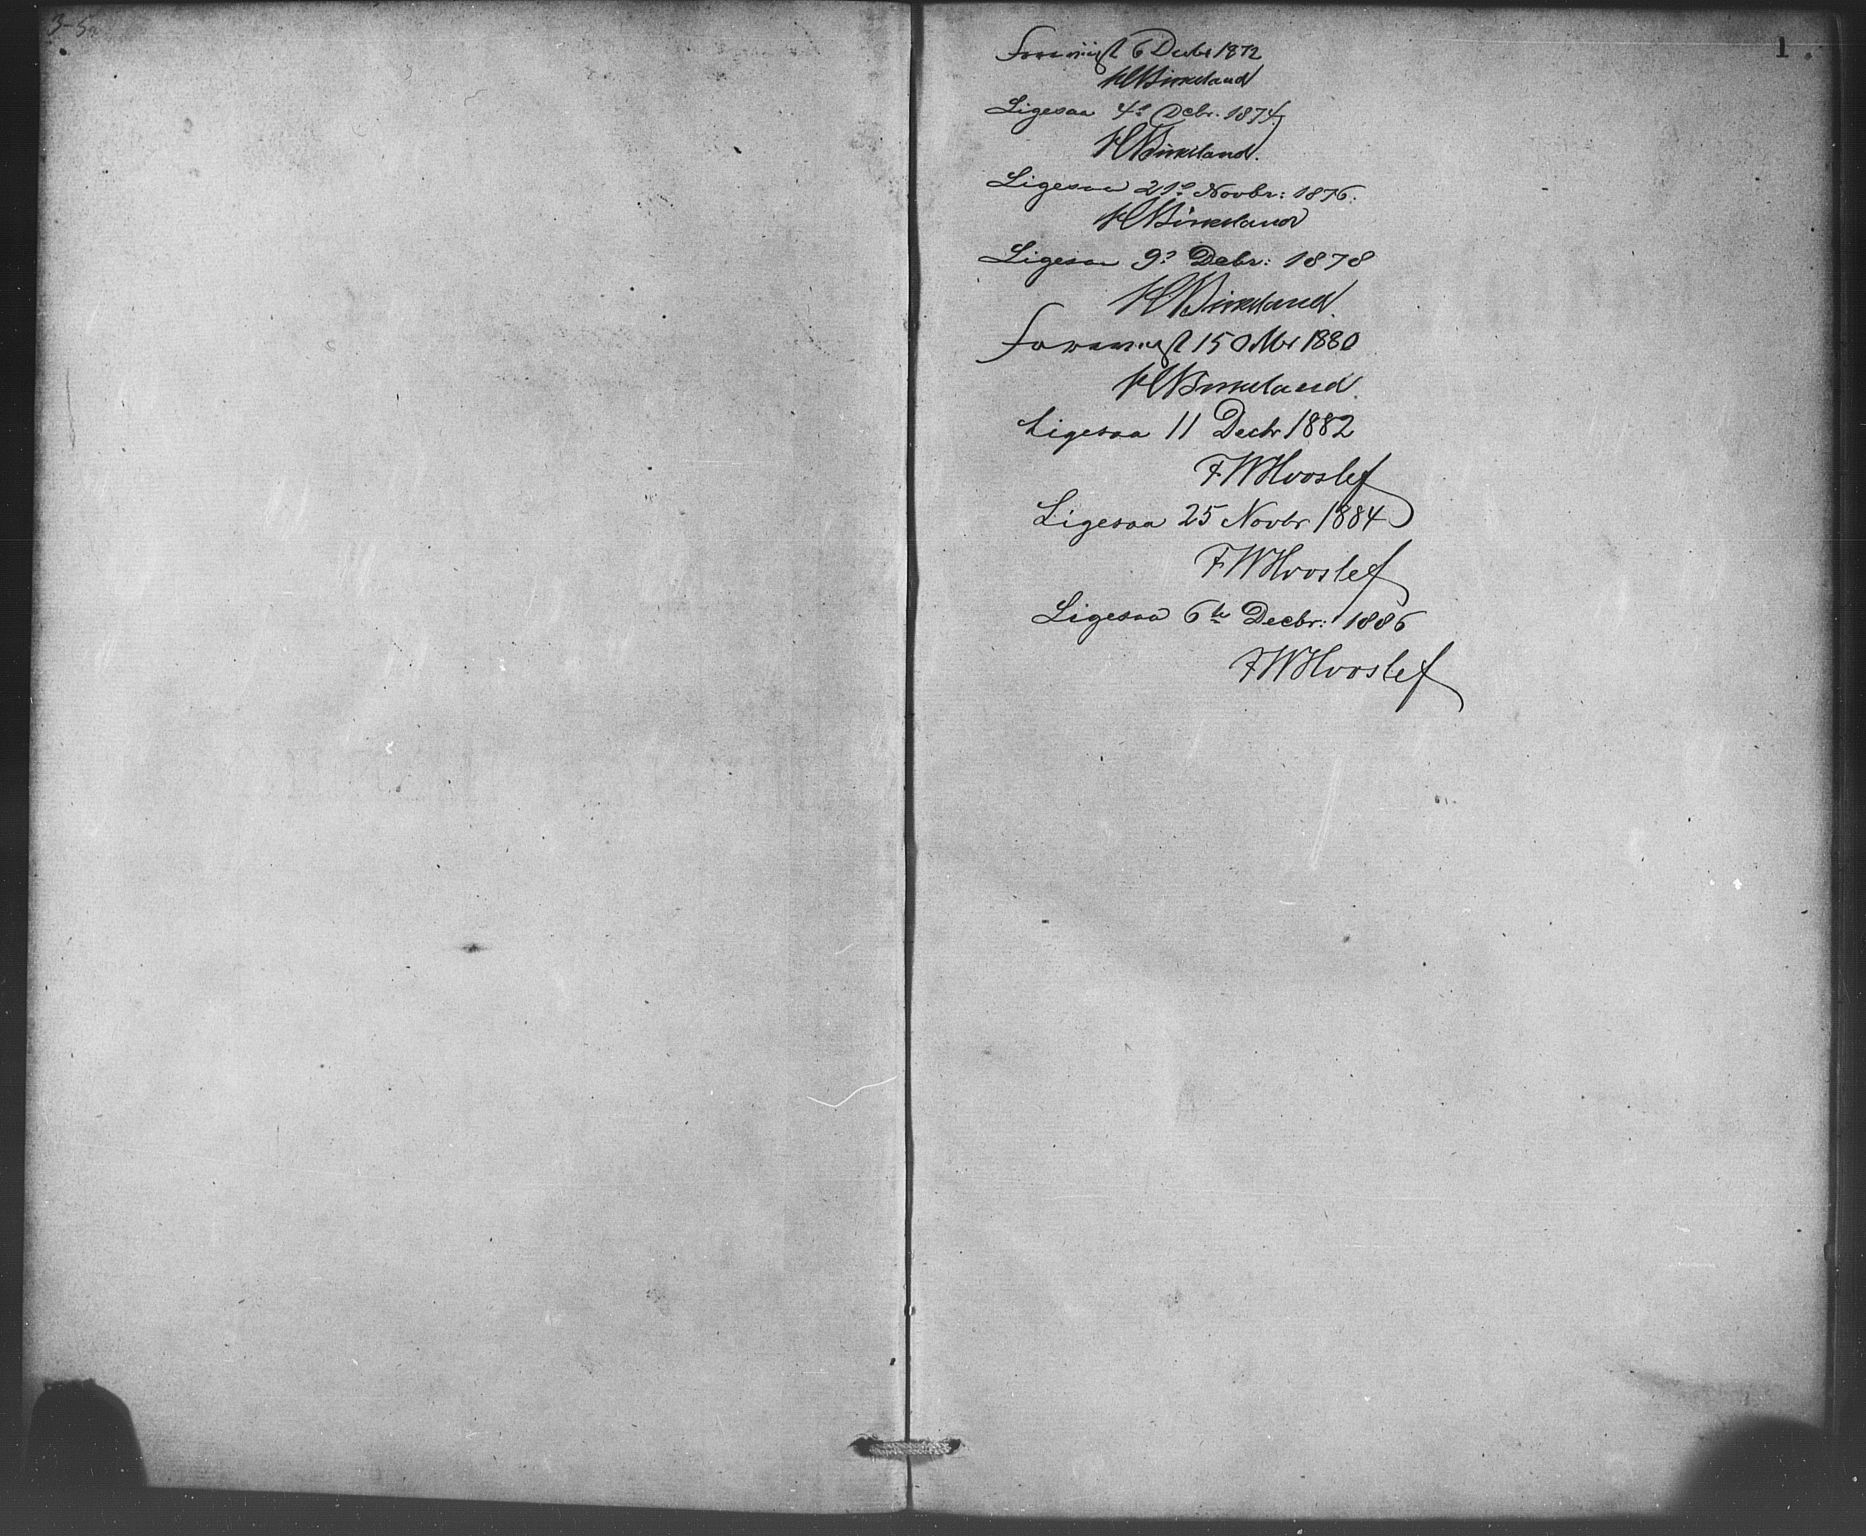 3-5
1.
Foreviist 6 Decbr 1872
HBirkeland
Ligesaa 4de Decbr. 1874.
HBirkeland.
Ligesaa 21de Novbr: 1876.
HBirkeland
Ligesaa 9de Decbr: 1878
HBirkeland.
Forevist 15 1880
HBirkeland.
Ligesaa 11 Decbr 1882
FWHvoslef
Ligesaa 25 Novbr 1884
FWHvoslef
Ligesaa 6te Decbr: 1886
FWHvoslef